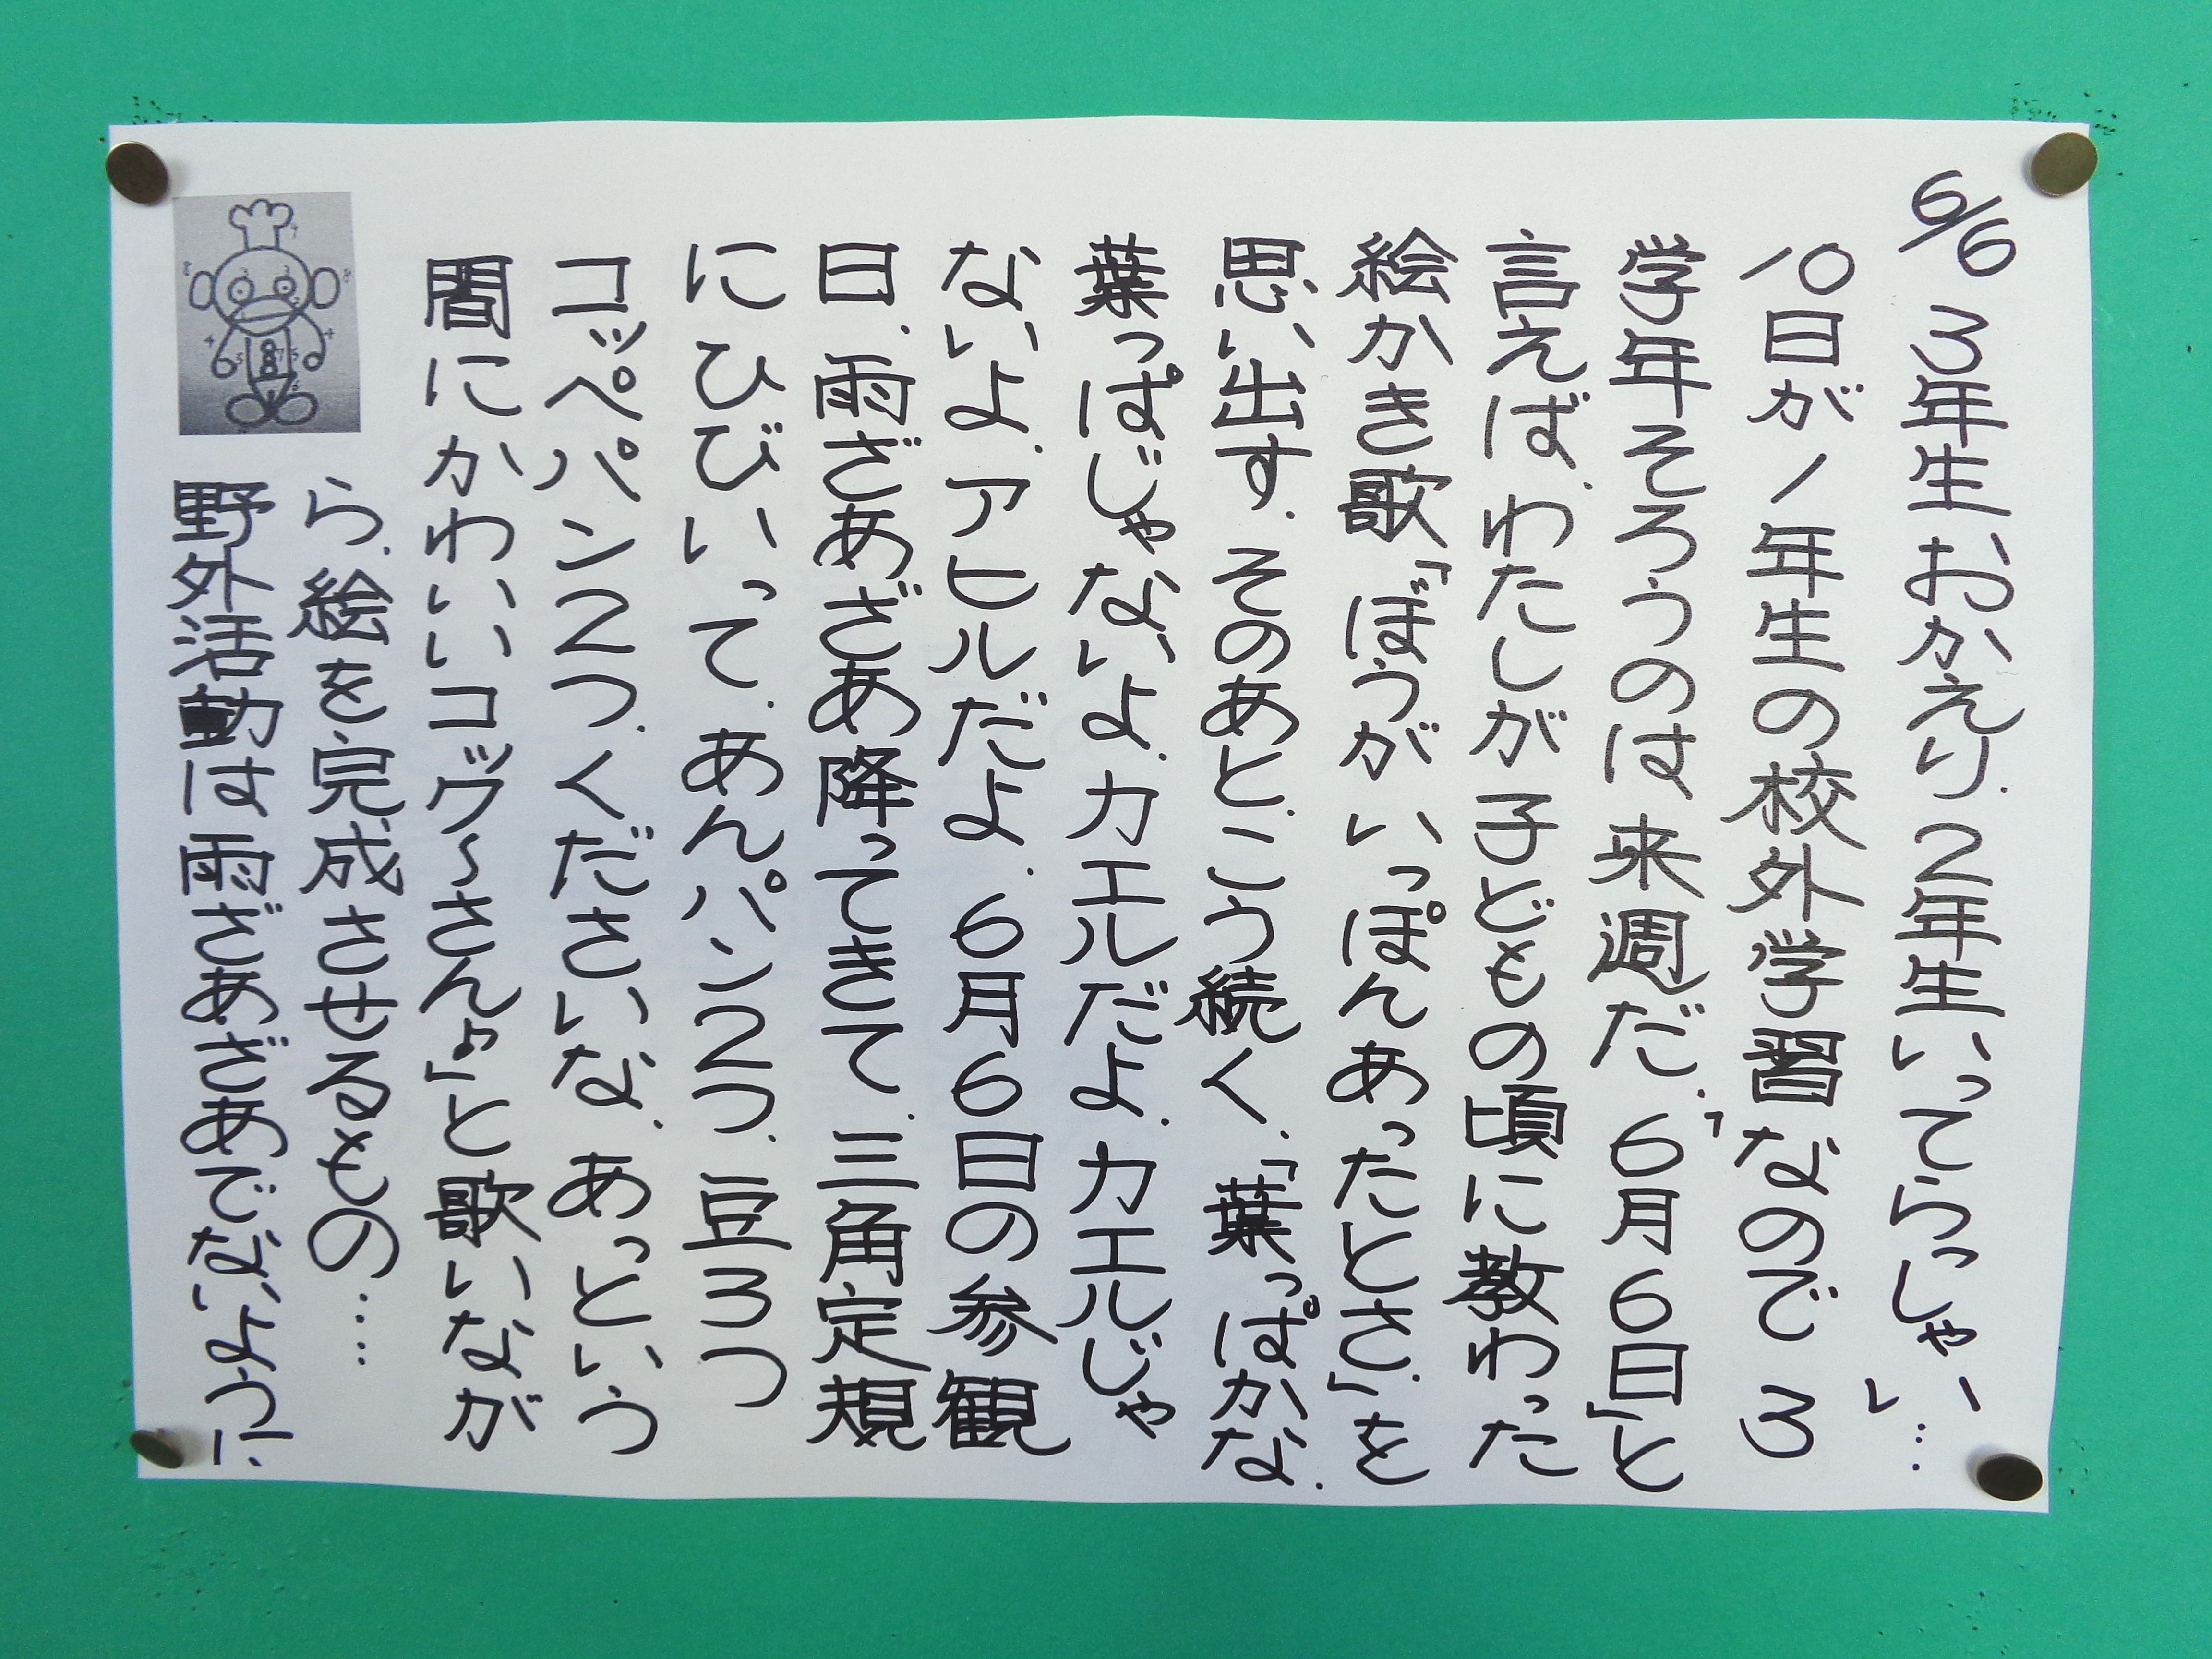 6/6 3年生おかえり、2年生いってらっしゃい…
10日が1年生の校外学習なので 3
学年そろうのは来週だ。「6月6日」と
言えば、わたしが子どもの頃に教わった
絵かき歌「ぼうがいっぽんあったとさ」を
思い出す。そのあと、こう続く、「葉っぱかな、
葉っぱじゃないよ、カエルだよ、カエルじゃ
ないよ、アヒルだよ、6月6日の参観
日、雨ざあざあ降ってきて、三角定規
にひびいって、あんパン2つ、豆3つ
コッペパン2つ、くださいな、あっという
間にかわいいコックさん♪」と歌いなが
ら、絵を完成させるもの…
野外活動は雨ざあざあでないように